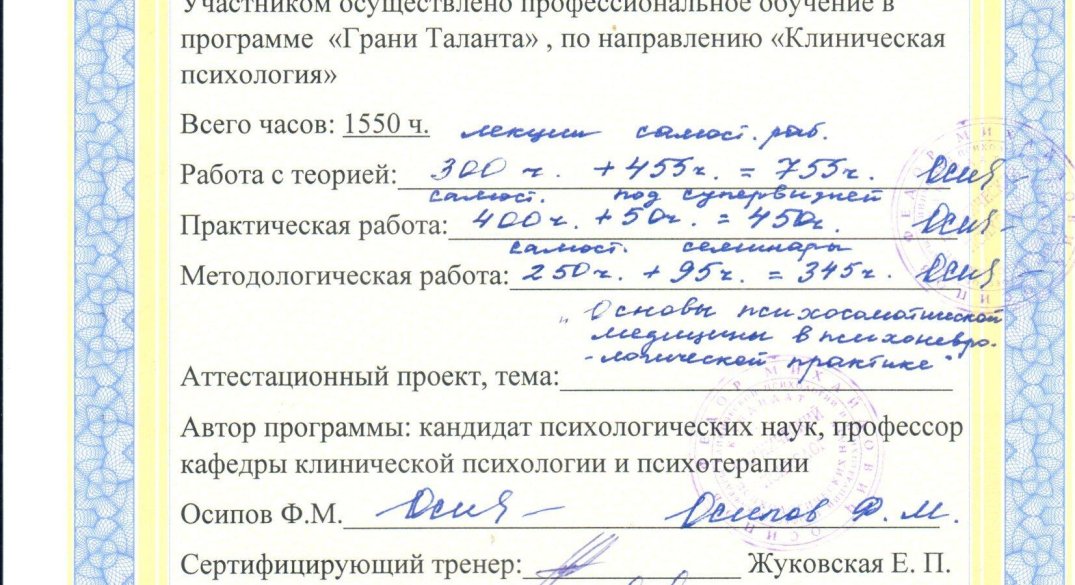 Участником осуществлено профессиональное обучение в
программе «Грани Таланта» , по направлению «Клиническая
психология»
Всего часов: 1550 ч. лекции самост. раб.
Работа с теорией: 300 ч. + 455ч. = 755ч. Осип
самост. под супервизией
Практическая работа: 400ч. + 50ч. = 450ч. Осип
самост. семинары
Методологическая работа: 250ч. + 95ч. = 345ч. Осип
„ Основы психосоматической
медицины в психоневро-
-логической практике"
Аттестационный проект, тема:
Автор программы: кандидат психологических наук, профессор
кафедры клинической психологии и психотерапии
Осипов Ф.М. Осип Осипов Ф. М.
Сертифицирующий тренер: Жуковская Е. П.